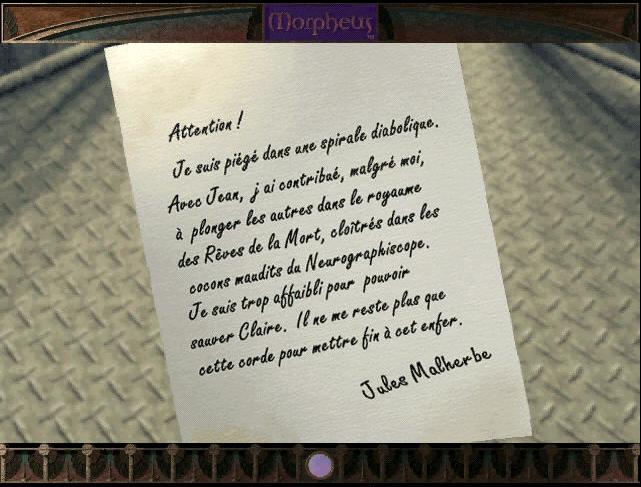 Morpheus™
Attention !
Je suis piégé dans une spirale diabolique.
Avec Jean, j'ai contribué, malgré moi,
à plonger les autres dans le royaume
des Rêves de la Mort, cloîtrés dans les
cocons maudits du Neurographiscope.
Je suis trop affaibli pour pouvoir
sauver Claire. Il ne me reste plus que
cette corde pour mettre fin à cet enfer.
Jules Malherbe